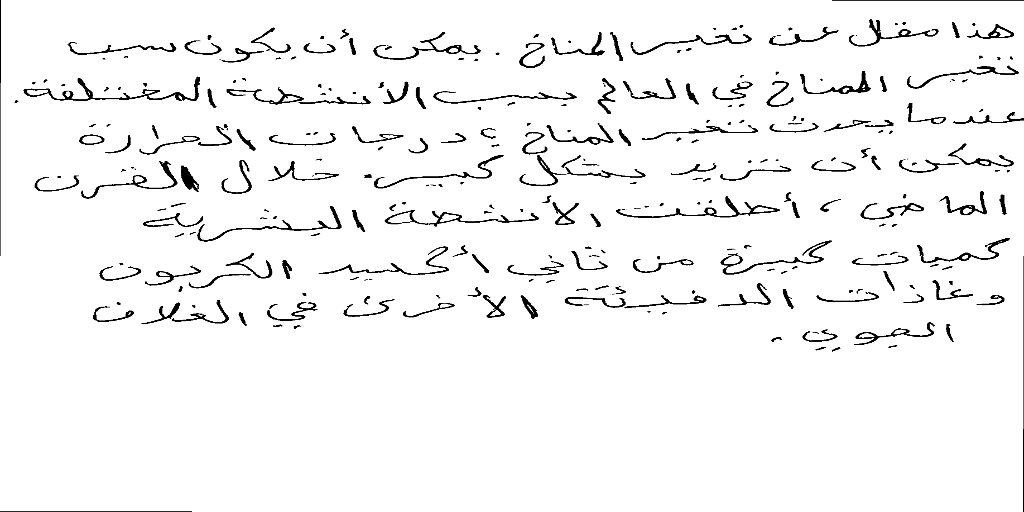 هذا مقال عن تغير المناخ. يمكن أن يكون سبب
تغير المناخ في العالم بسبب الأنشطة المختلفة.
عندما يحدث تغير المناخ ؛ درجات الحرارة
يمكن أن تزيد بشكل كبير. خلال القرن
الماضي ، أطلقت الأنشطة البشرية
كميات كبيرة من ثاني أكسيد الكربون
وغازات الدفيئة الأخرى في الغلاف
الجوي.